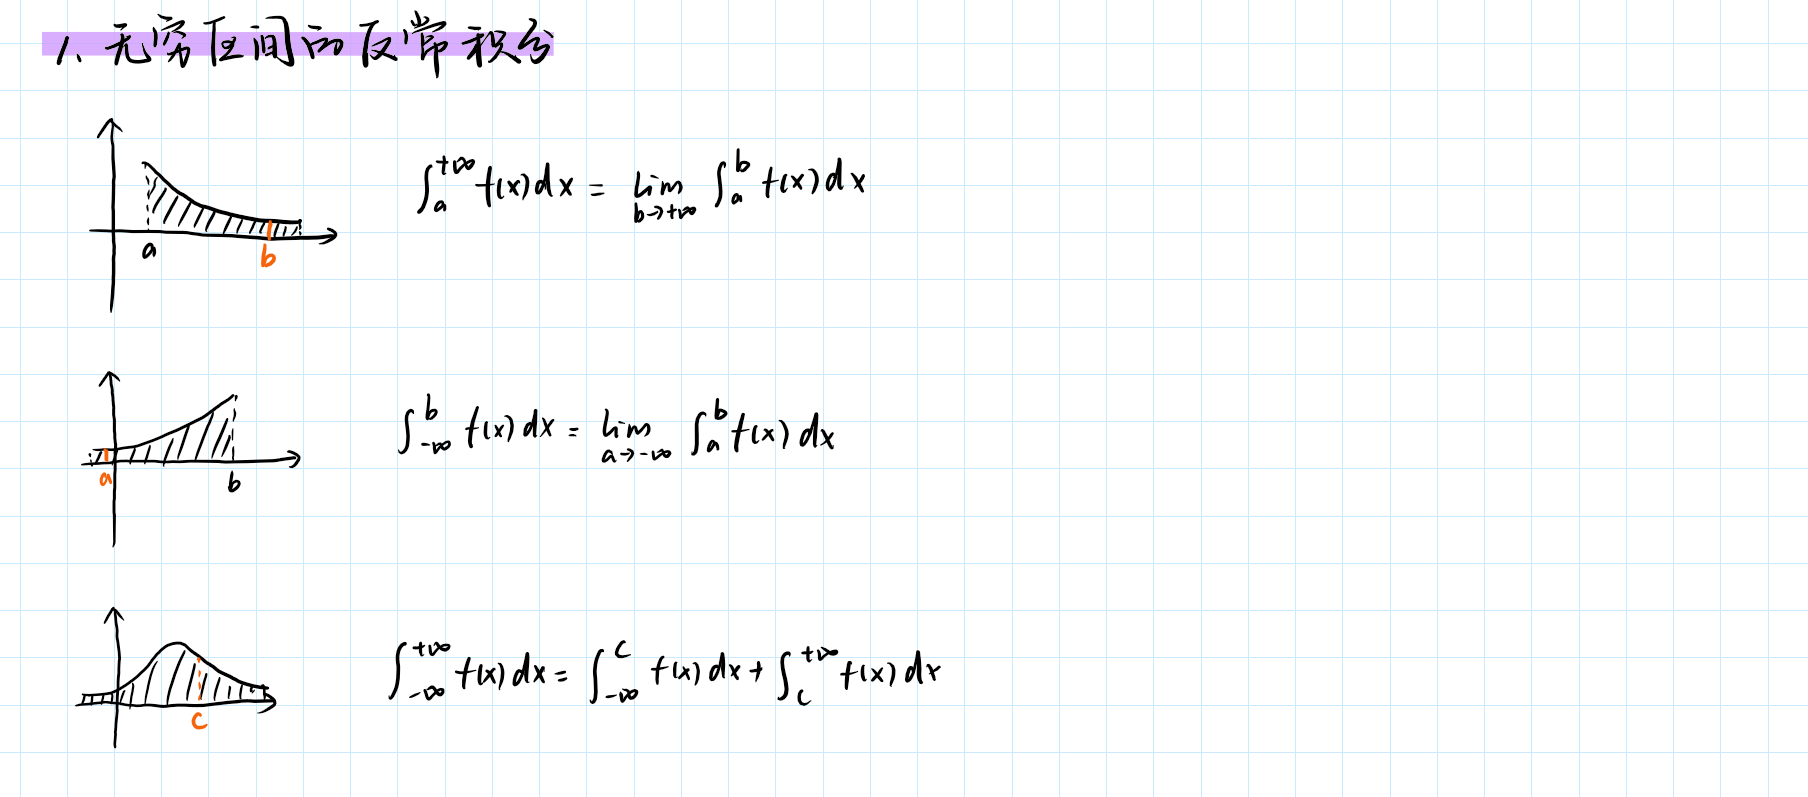 1. 无穷区间的反常积分
∫_a^{+∞} f(x)dx = lim_{b→+∞} ∫_a^b f(x)dx
a
b
∫_{-∞}^b f(x)dx = lim_{a→-∞} ∫_a^b f(x)dx
a
b
∫_{-∞}^{+∞} f(x)dx = ∫_{-∞}^c f(x)dx + ∫_c^{+∞} f(x)dx
c